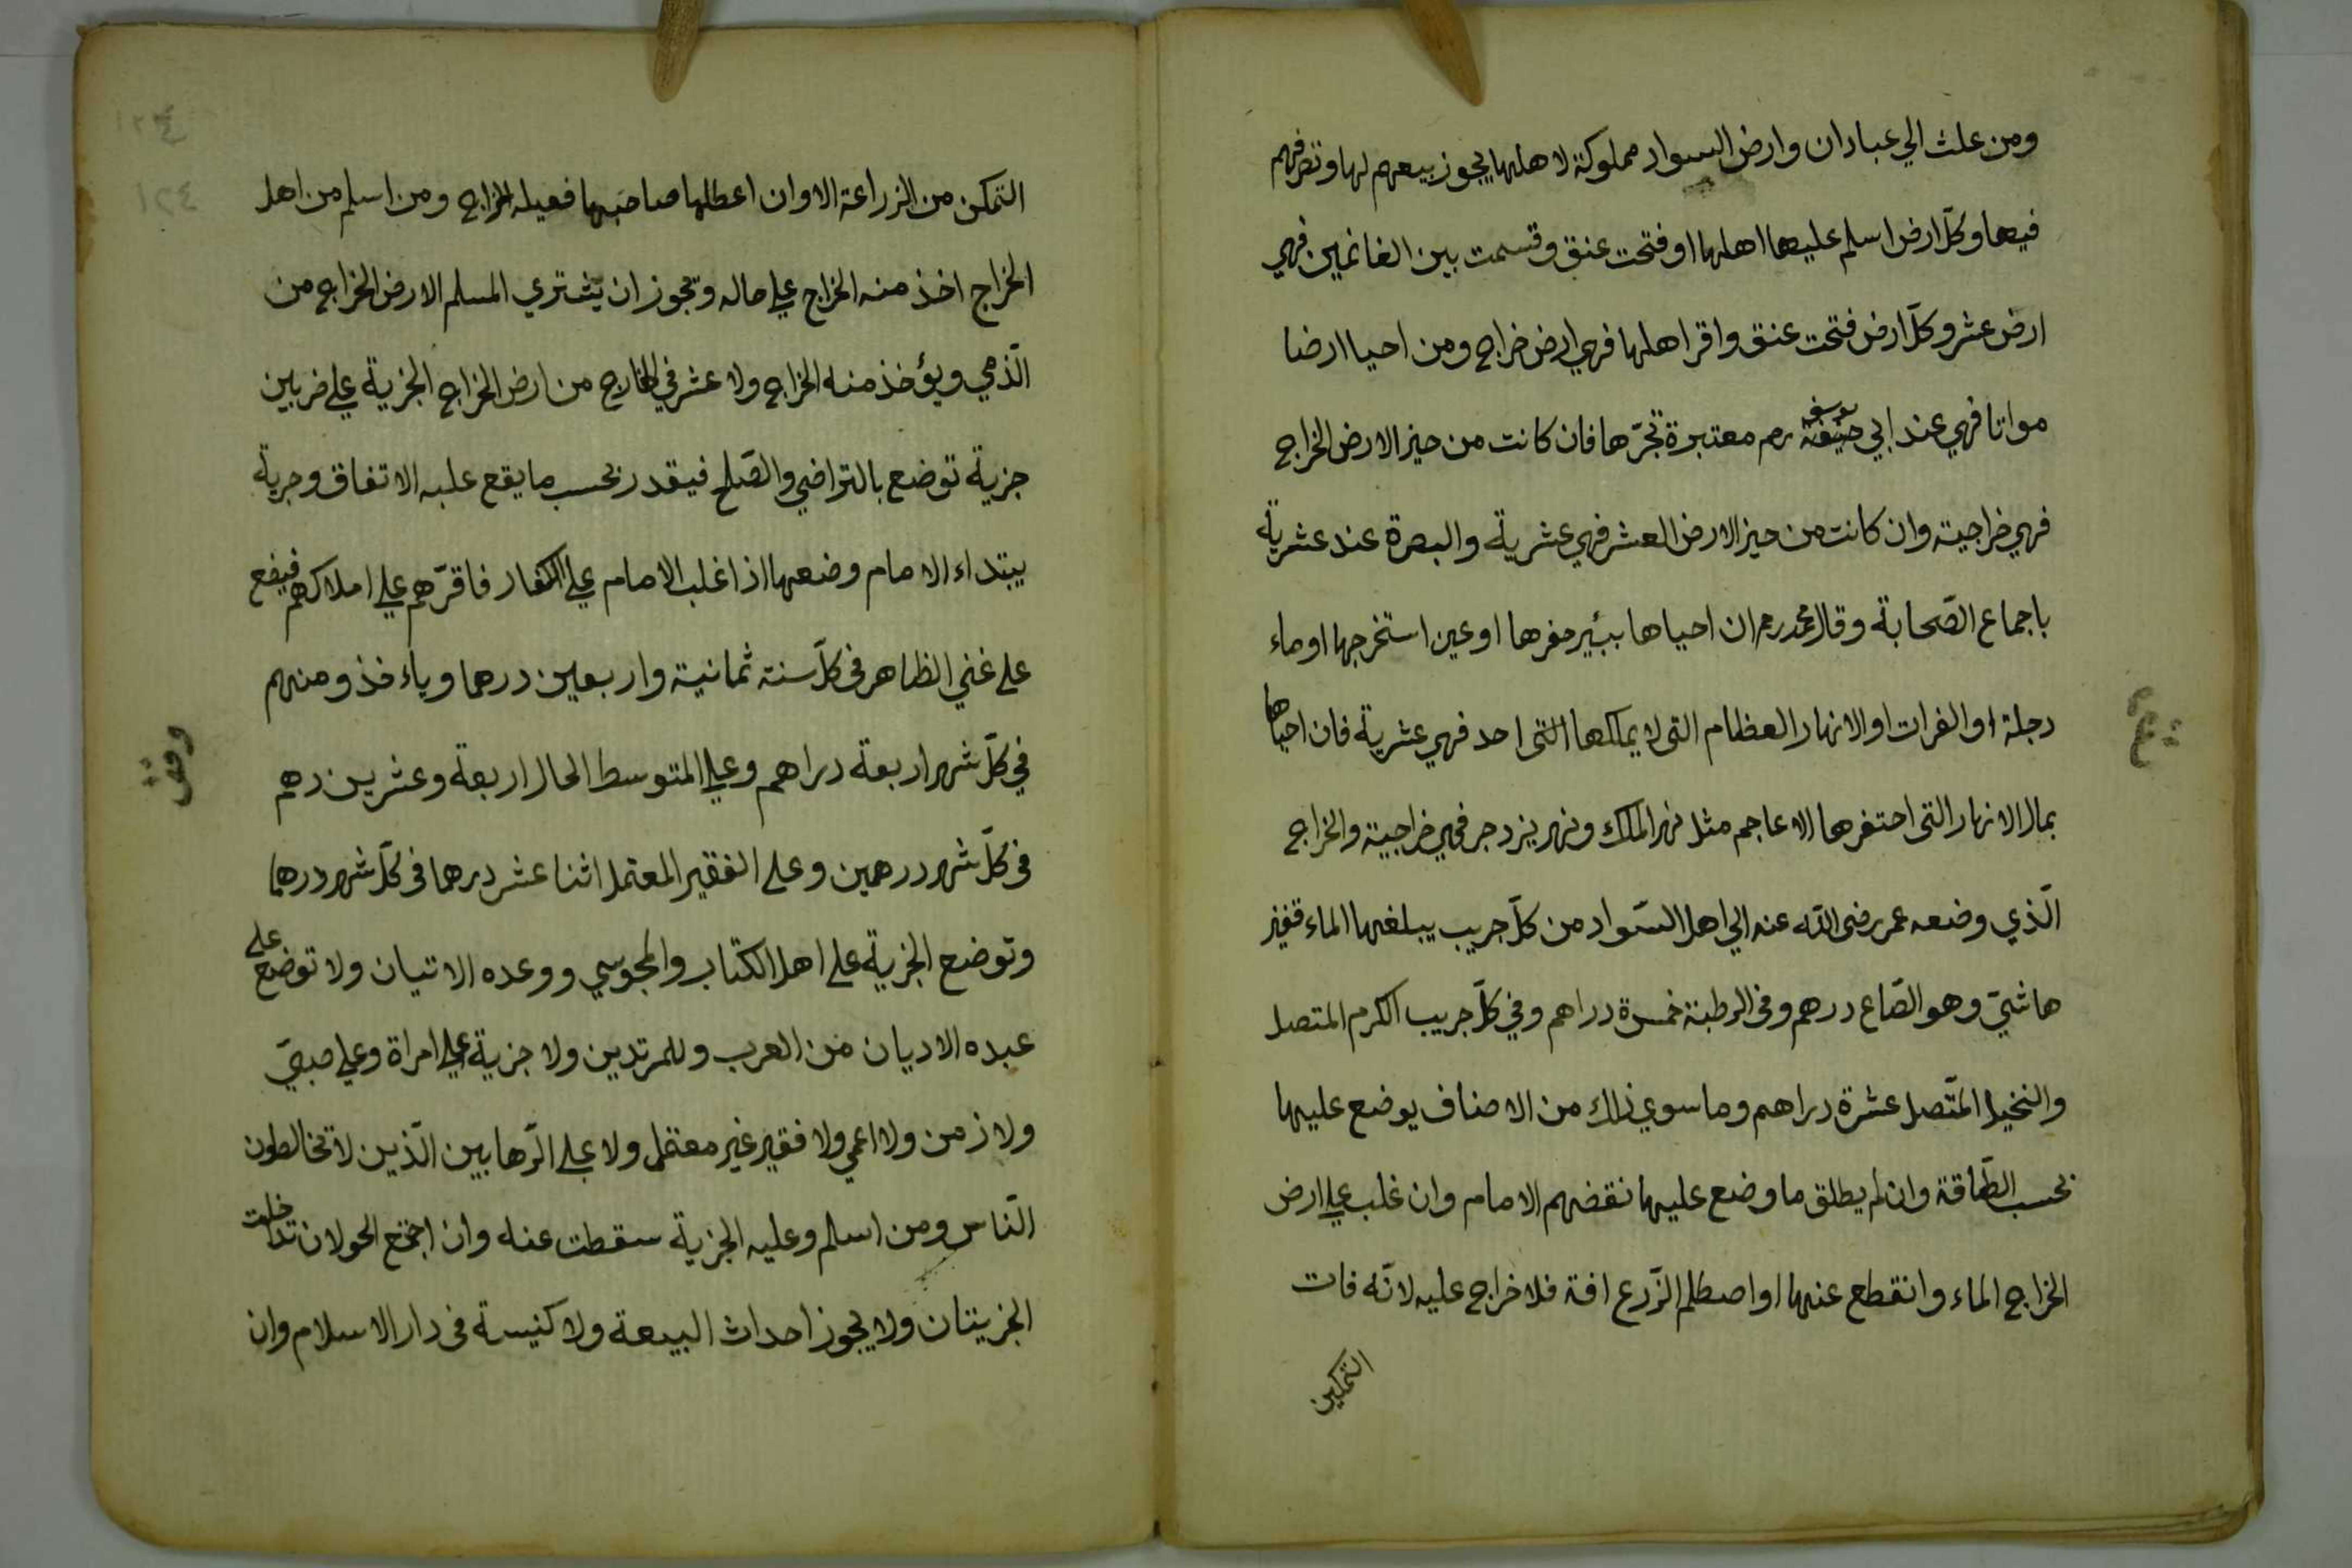 ومن علث الي عبادان وارض السواد مملوكة لاهلها يجوز بيعهم لها وتصرفهم
فيها وكلّ ارض اسلم عليها اهلها او فتحت عنق وقسمت بين الغانمين فهي
ارض عشر وكلّ ارض فتحت عنق واقر اهلها فهي ارض خراج ومن احيا ارضا
مواتا فهي عند ابي حنيفة يوسف رم معتبرة تجرّها فان كانت من حيز الارض الخراج
فهي خراجية وان كانت من حيز الارض العشر فهي عشرية والبصرة عند عشرية
باجماع الصّحابة وقال محمد رحم ان احياها ببئير حفرها او عين استخرجها او ماء
دجلة او الفرات او الانهار العظام التى لا يملكها التى احد فهي عشرية فان احياها
بمال الانهار التى احتفرها الاعاجم مثل نهر الملك ونهر يزدجر فهي خراجية والخراج
الّذي وضعه عمر رضى الله عنه الي اهل السّواد من كلّ جريب يبلغها الماء قفيز
هاشميّ وهو الصّاع درهم وفى الرطبة خمسة دراهم وفي كلّ جريب الكرم المتصل
والنخيل المتّصل عشرة دراهم وما سوي ذلك من الاصناف يوضع عليها
بحسب الطّاقة وان لم يطلق ما وضع عليها نقضهم الامام وان غلب علي ارض
الخراج الماء وانقطع عنها او اصطلم الزّرع افة فلا خراج عليه لانّه فات
التمكين
١٢٤
التمكن من الزراعة الا وان اعطلها صاحبها فعيله الخراج ومن اسلم من اهل
الخراج اخذ منه الخراج علي حاله ويجوز ان يشتري المسلم الارض الخراج من
الّذمي ويؤخذ منه الخراج ولا عشر في الخارج من ارض الخراج الجزية علي ضربين
جزية توضع بالتراضي والصّلح فيقدر بحسب ما يقع عليه الاتفاق وجزية
يبتداء الامام وضعها اذا غلب الامام علي الكفار فاقرّهم علي املاكهم فيضع
على غني الظاهر فى كلّ سنة ثمانية واربعين درهما وياءخذ ومنهم
في كلّ شهر اربعة دراهم وعلي المتوسط الحال اربعة وعشرين دهم
فى كلّ شهر درهمين وعلى الفقير المعتمل اثنا عشر درهما فى كلّ شهر درهما
وتوضع الجزية على اهل الكتاب والمجوسي ووعده الاتيان ولا توضع على
عبده الاديان من العرب وللمرتدين ولا جزية علي امراة وعلي صبيّ
ولا زمن ولا اعمي ولا فقير غير معتمل ولا علي الرّهابين الّذين لا تخالطون
النّاس ومن اسلم وعليه الجزية سقطت عنه وان اجتمع الحولان تداخلت
الجزيتان ولا يجوز احداث البيعة ولا كنيسة فى دار الاسلام وان
وقف